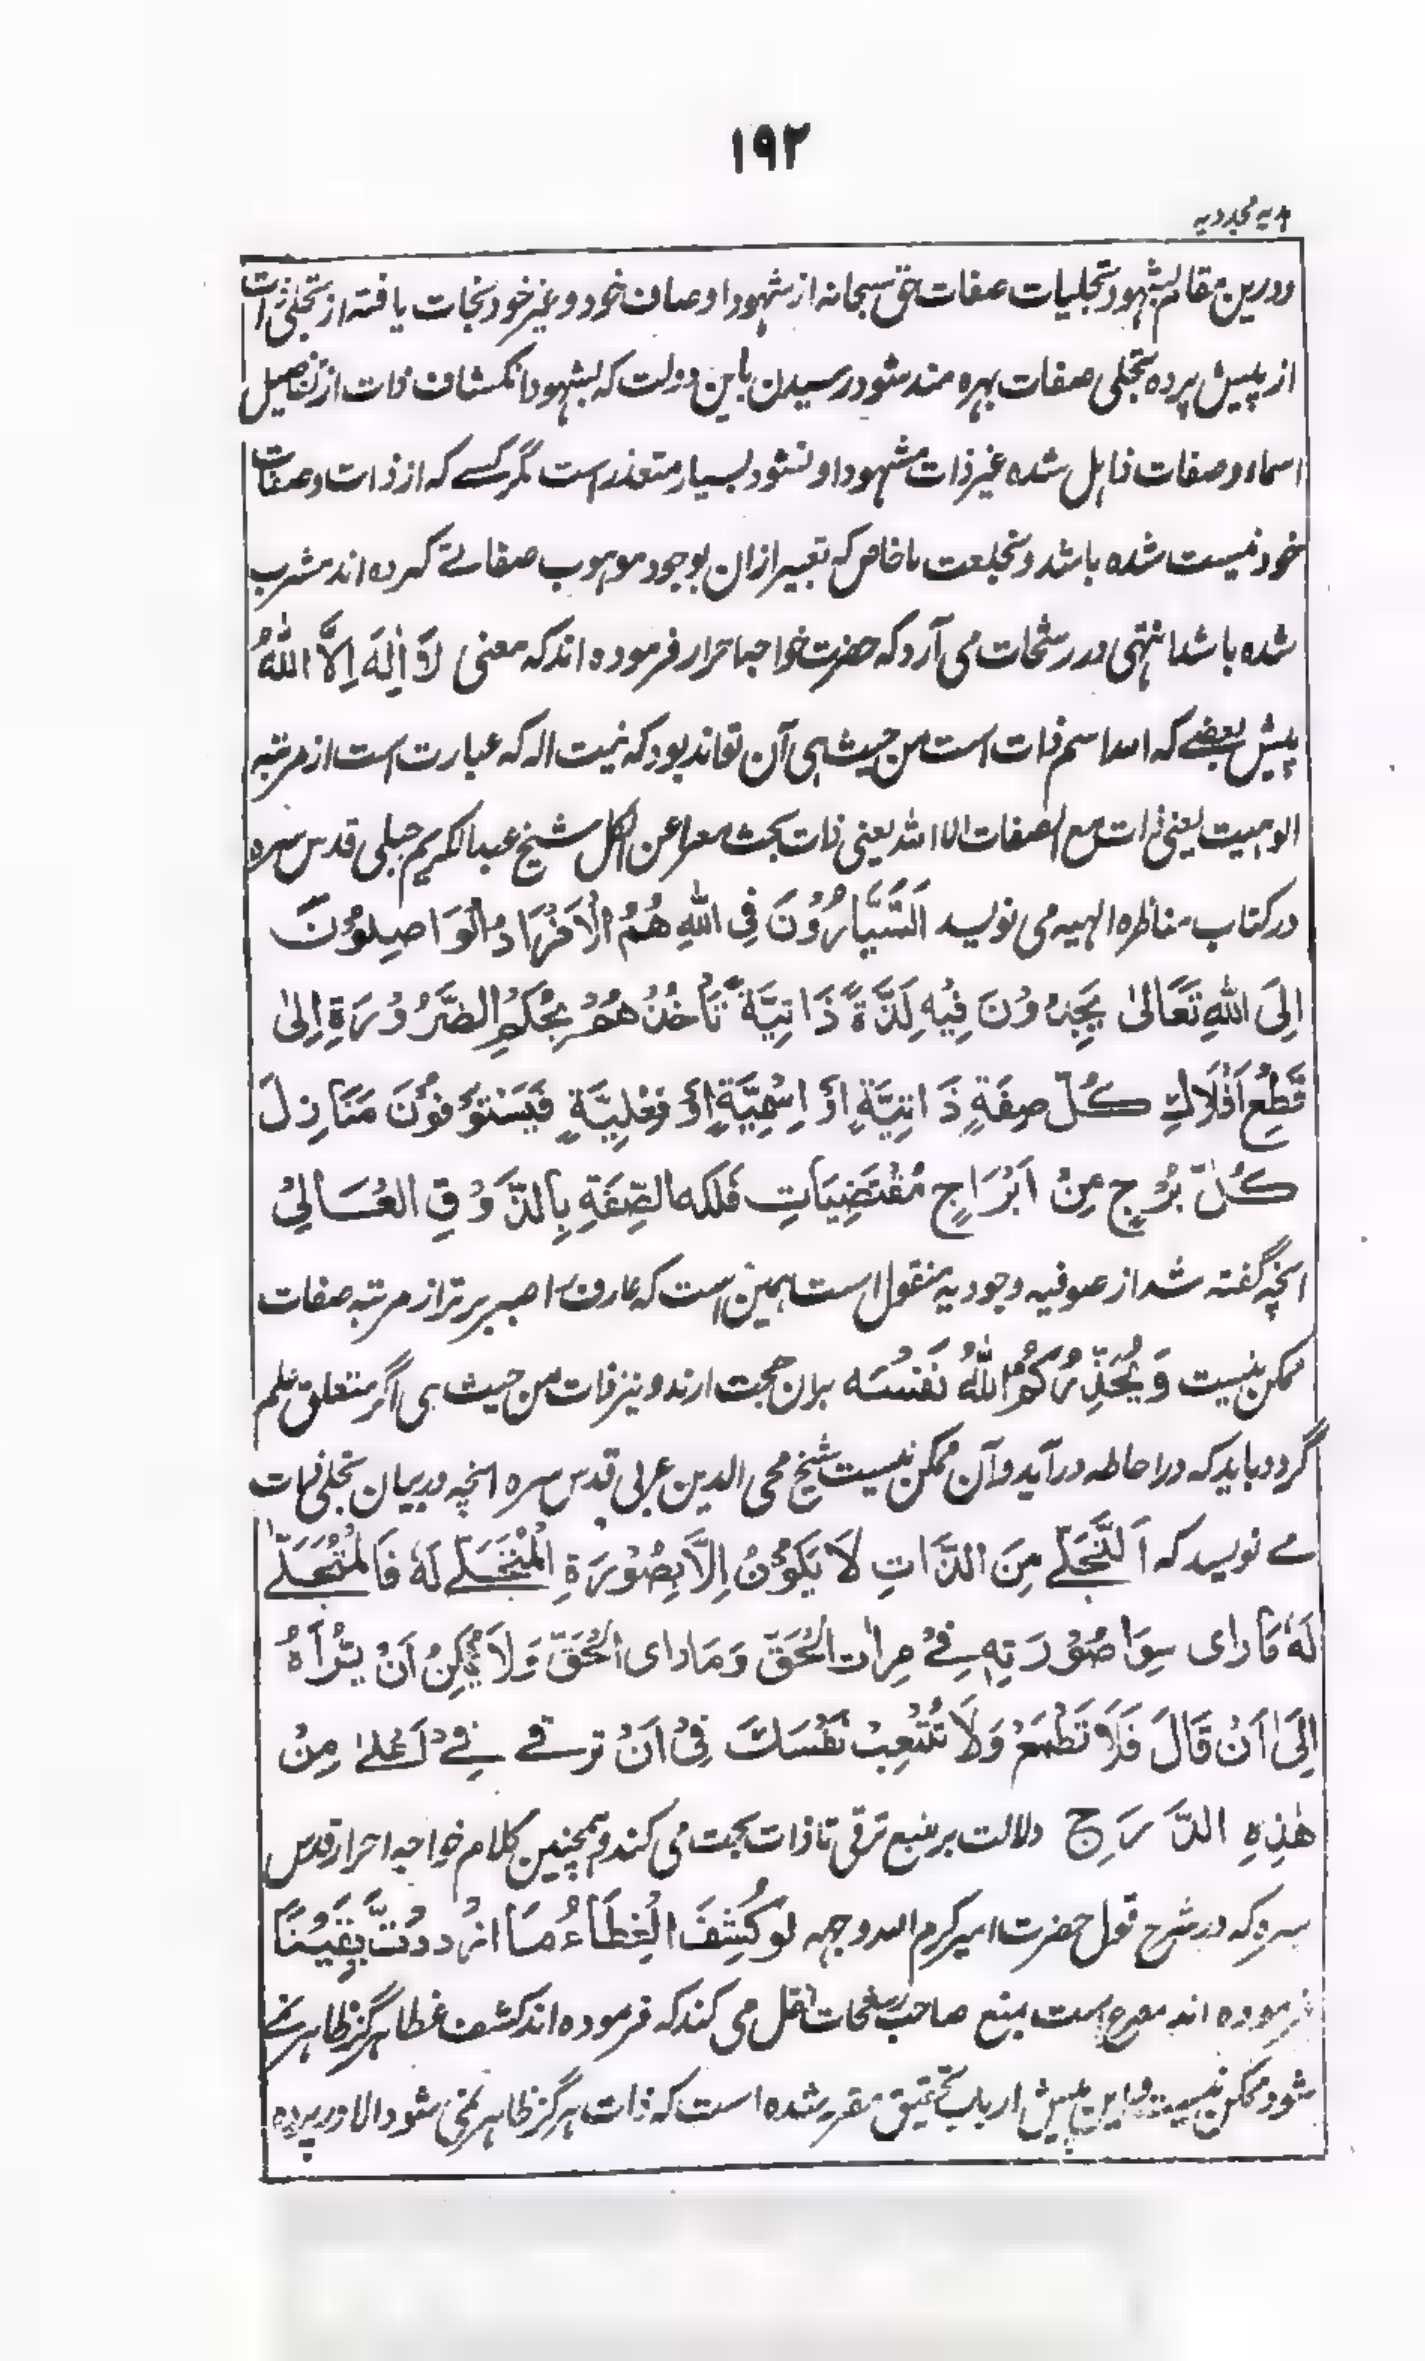 ۱۹۲
ہدیہ مجددیہ
ودرین مقام بشہود تجلیات صفات حق سبحانہ از شہود اوصاف خود و غیر خود نجات یافتہ از تجلی ذات
از پیش پردہ تجلی صفات بہرہ مند شود رسیدن باین دولت کہ بشہود انکشاف ذات از تفاصیل
اسماء و صفات ذاہل شدہ غیر ذات مشہود او نشود بسیار متعذر است مگر کسے کہ از ذات و صفات
خود نیست شدہ باشد و بخلعت خاص کہ تعبیر ازان بوجود موہوب صفاتے کردہ اند مشرب
شدہ باشد انتہی در رشحات می آرد کہ حضرت خواجہ احرار فرمودہ اند کہ معنی لَا اِلٰهَ اِلَّا اللّٰهُ
پیش بعضے کہ اللہ اسم ذات است من حیث ہی آن تواند بود کہ نیست الہ کہ عبارت است از مرتبہ
الوہیت یعنی ذات مع الصفات الا اللہ یعنی ذات بحت معرا عن الکل شیخ عبدالکریم جیلی قدس سرہ
در کتاب مناظرہ الہیہ می نویسد اَلسَّيَّارُوْنَ فِي اللّٰهِ هُمُ الْاَفْرَادُ الْوَاصِلُوْنَ
اِلَى اللّٰهِ تَعَالٰى يَجِدُوْنَ فِيْهِ لَذَّةً ذَاتِيَّةً تَأْخُذُهُمْ بِحُكْمِ الضَّرُوْرَةِ اِلٰى
قَطْعِ اَفْلَاكِ كُلِّ صِفَةٍ ذَاتِيَّةٍ اَوْ اِسْمِيَّةٍ اَوْ فِعْلِيَّةٍ فَيَسْتَوْفُوْنَ مَنَازِلَ
كُلِّ بُرْجٍ مِنْ اَبْرَاجِ مُقْتَضِيَاتِ فَلَكِ الصِّفَةِ بِالذَّوْقِ الْعَالِيْ
انچہ گفتہ شد از صوفیہ وجودیہ منقول است ہمین است کہ عارف را صبر برتر از مرتبہ صفات
ممکن نیست وَيُحَذِّرُكُمُ اللّٰهُ نَفْسَه بران حجت ارند و نیز ذات من حیث ہی اگر متعلق علم
گردد باید کہ در احاطہ در آید و آن ممکن نیست شیخ محی الدین عربی قدس سرہ انچہ در بیان تجلی ذات
مے نویسد کہ اَلتَّجَلِّے مِنَ الذَّاتِ لَا يَكُوْنُ اِلَّا بِصُوْرَةِ الْمُتَجَلّٰے لَهٗ فَالْمُتَجَلّٰے
لَهٗ مَا رَاى سِوَا صُوْرَتِهٖ فِيْ مِرٰاتِ الْحَقِّ وَمَا رَاى الْحَقَّ وَلَا يُمْكِنُ اَنْ يَّرَاهُ
اِلٰى اَنْ قَالَ فَلَا تَطْمَعْ وَلَا تُتْعِبْ نَفْسَكَ فِيْ اَنْ ترقے فِيْ اَعْلٰے مِنْ
هٰذِهِ الدَّرَجِ دلالت بر منع ترقی تا ذات بحت می کند و ہمچنین کلام خواجہ احرار قدس
سرہ کہ در شرح قول حضرت امیر کرم اللہ وجہہ لَوْ كُشِفَ الْغِطَاءُ مَا ازْدَدْتُ يَقِيْنًا
فرمودہ اند مصرح است بمنع صاحب رشحات نقل می کند کہ فرمودہ اند کشف غطا ہرگز ظاہر نے
شود ممکن نیست و این پیش ارباب تحقیق مقرر شدہ است کہ ذات ہرگز ظاہر نمی شود الا در پردہ